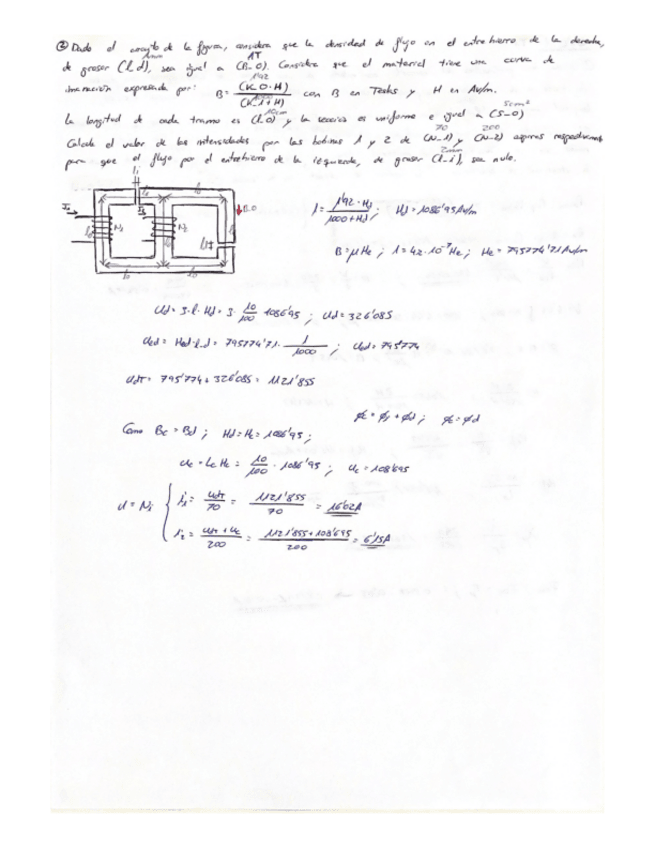 ② Dado el circuito de la figura, considera que la densidad de flujo en el entrehierro de la derecha,
1mm 1T
de grosor (l_d), sea igual a (B_0). Considera que el material tiene una curva de
1'92
imanación expresada por: B = (K_0·H) / (K_1+H) con B en Teslas y H en Av/m.
1000
10cm 5cm²
La longitud de cada tramo es (l_0) y la sección es uniforme e igual a (S_0)
70 200
Calcula el valor de las intensidades por las bobinas 1 y 2 de (N_1) y (N_2) espiras respectivamente
2mm
para que el flujo por el entrehierro de la izquierda, de grosor (l_i), sea nulo.
N₁ N₂ B_0
l₀ l₀
1 = 1'92 · Hd / 1000 + Hd ; Hd = 1086'95 Av/m
B = μ He ; 1 = 4π · 10⁻⁷ He ; He = 795774'71 Av/m
Ud = 3 · l · Hd = 3 · 10/100 · 1086'95 ; Ud = 326'085
Ued = Hed · l_d = 795774'71 · 1/1000 ; Ued = 795'774
Udt = 795'774 + 326'085 = 1121'855
φc = φi + φd ; φc = φd
Como Bc = Bd ; Hd = Hc = 1086'95 ;
Uc = Lc Hc = 10/100 · 1086'95 ; Uc = 108'695
U = Ni { i₁ = Udt/70 = 1121'855/70 = 16'02A
i₂ = Udt + Uc / 200 = 1121'855 + 108'695 / 200 = 6'15A